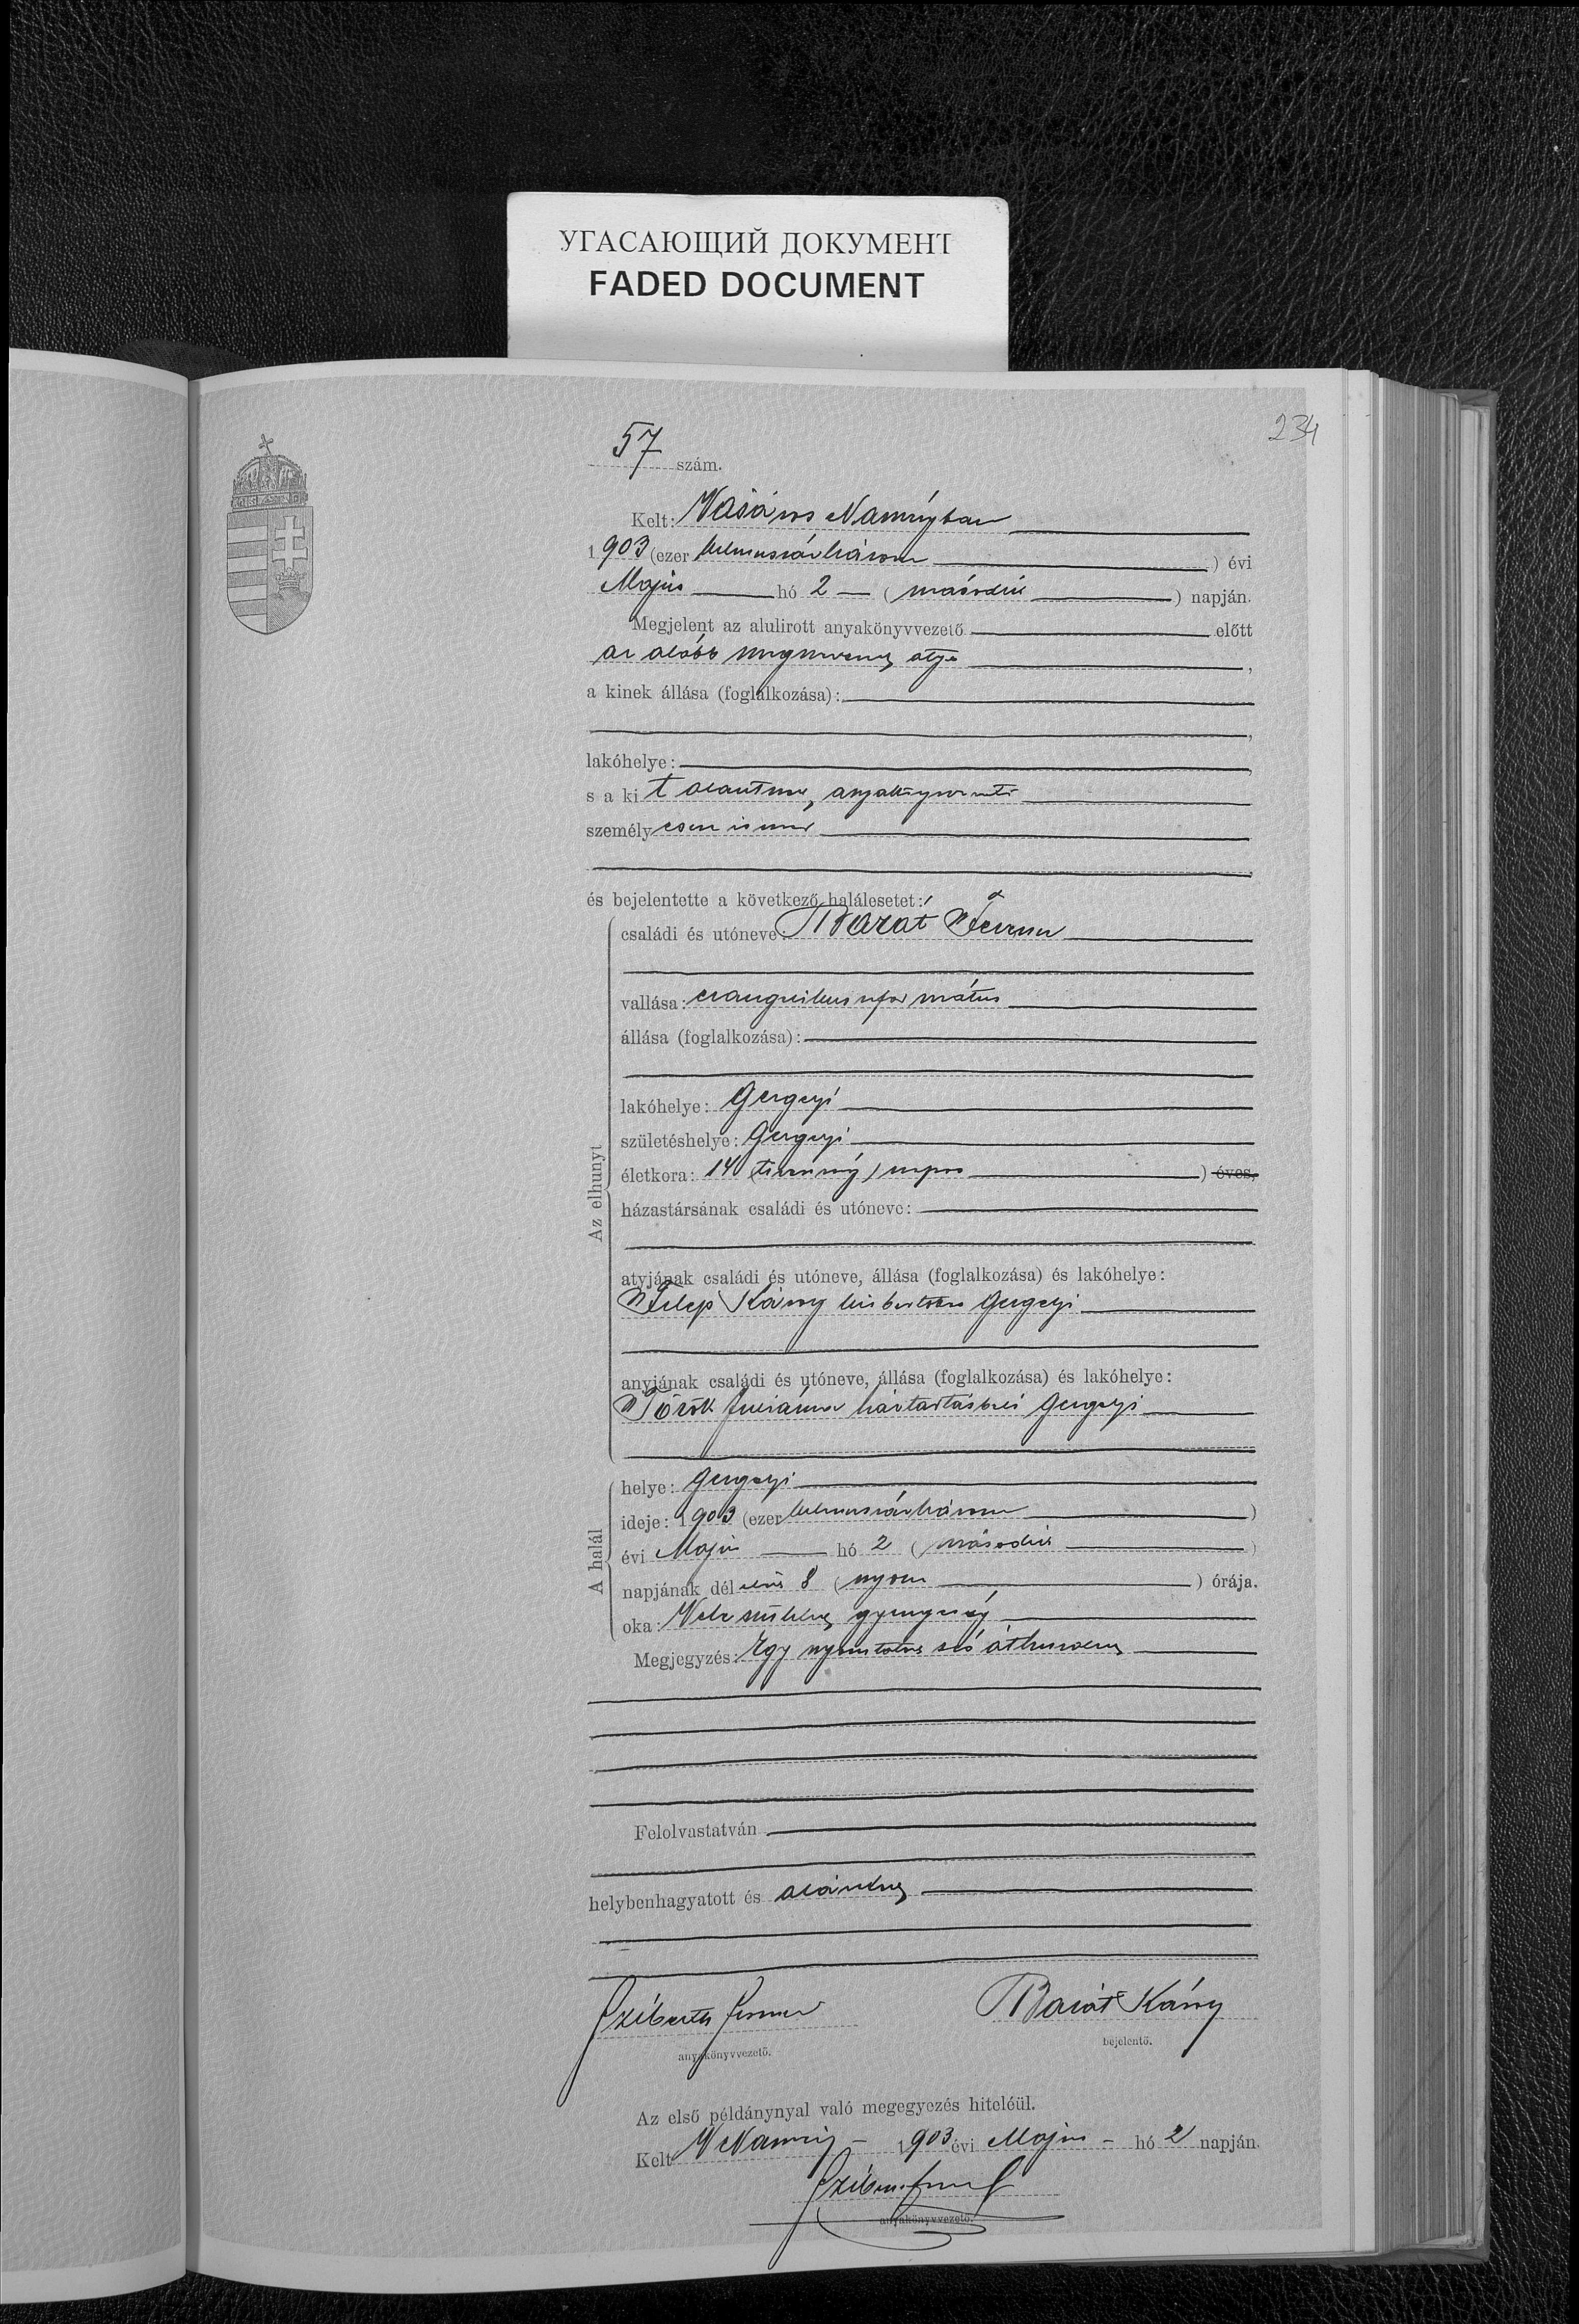 УГАСАЮЩИЙ ДОКУМЕНТ
FADED DOCUMENT
234
57 szám.
Kelt: Vásáros Naményban
1903 (ezer kilenczszázhárom) évi
Május hó 2 (második) napján.
Megjelent az alulirott anyakönyvvezető előtt
az alább megnevezett atya,
a kinek állása (foglalkozása):
lakóhelye:
s a kit alantirott anyakönyvvezető
személyesen ismer
és bejelentette a következő halálesetet:
családi és utóneve: Barát Ferencz
vallása: evangelikus református
állása (foglalkozása):
lakóhelye: Gergelyi
születéshelye: Gergelyi
életkora: 14 (tizennégy) napos ) éves,
házastársának családi és utóneve:
Az elhunyt
atyjának családi és utóneve, állása (foglalkozása) és lakóhelye:
Filep Károly kisbirtokos Gergelyi
anyjának családi és utóneve, állása (foglalkozása) és lakóhelye:
Török Juliánna háztartásbeli Gergelyi
A halál
helye: Gergelyi
ideje: 1903 (ezer kilenczszázhárom)
évi Május hó 2 (második)
napjának délelőtt 8 (nyolcz) órája.
oka: Vele született gyengeség
Megjegyzés: Egy nyomtatott szó áthuzva
Felolvastatván
helybenhagyatott és aláiratott
anyakönyvvezető.
Barát Károly
bejelentő.
Az első példánynyal való megegyezés hiteléül.
Kelt V Namény 1903 évi Május hó 2 napján.
anyakönyvvezető.